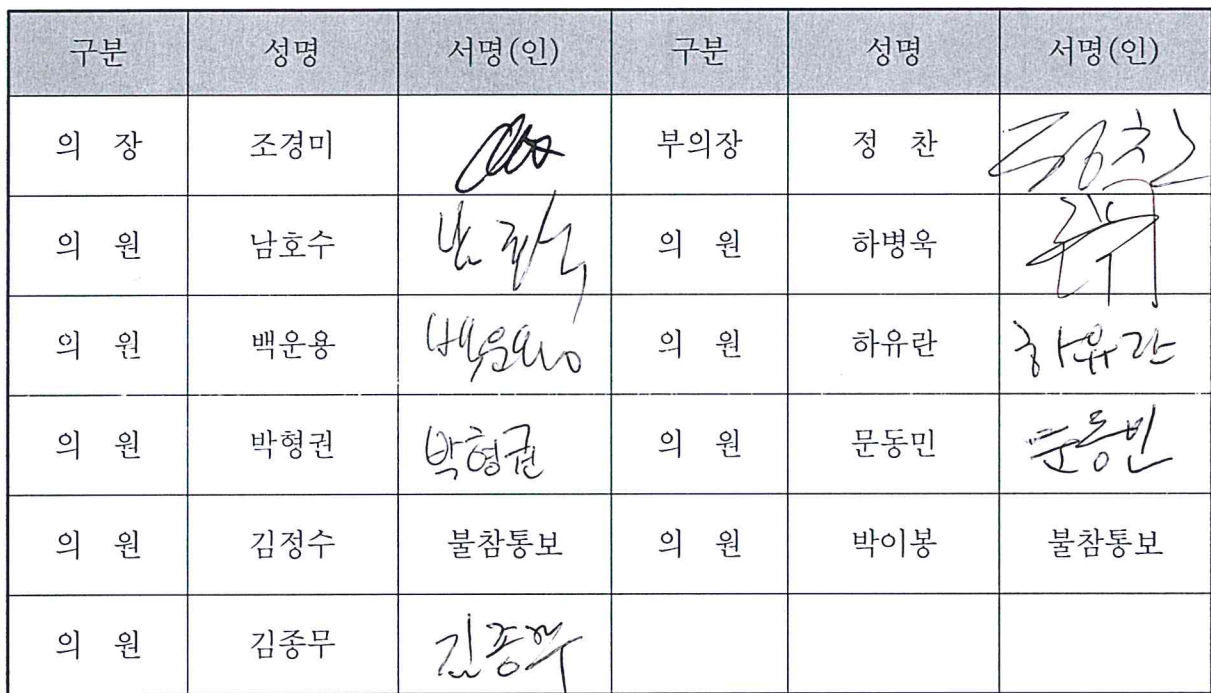 구분 성명 서명(인) 구분 성명 서명(인)
의 장 조경미 부의장 정 찬 정찬
의 원 남호수 의 원 하병욱
의 원 백운용 백운용 의 원 하유란 하유란
의 원 박형권 박형권 의 원 문동민 문동민
의 원 김정수 불참통보 의 원 박이봉 불참통보
의 원 김종무 김종무